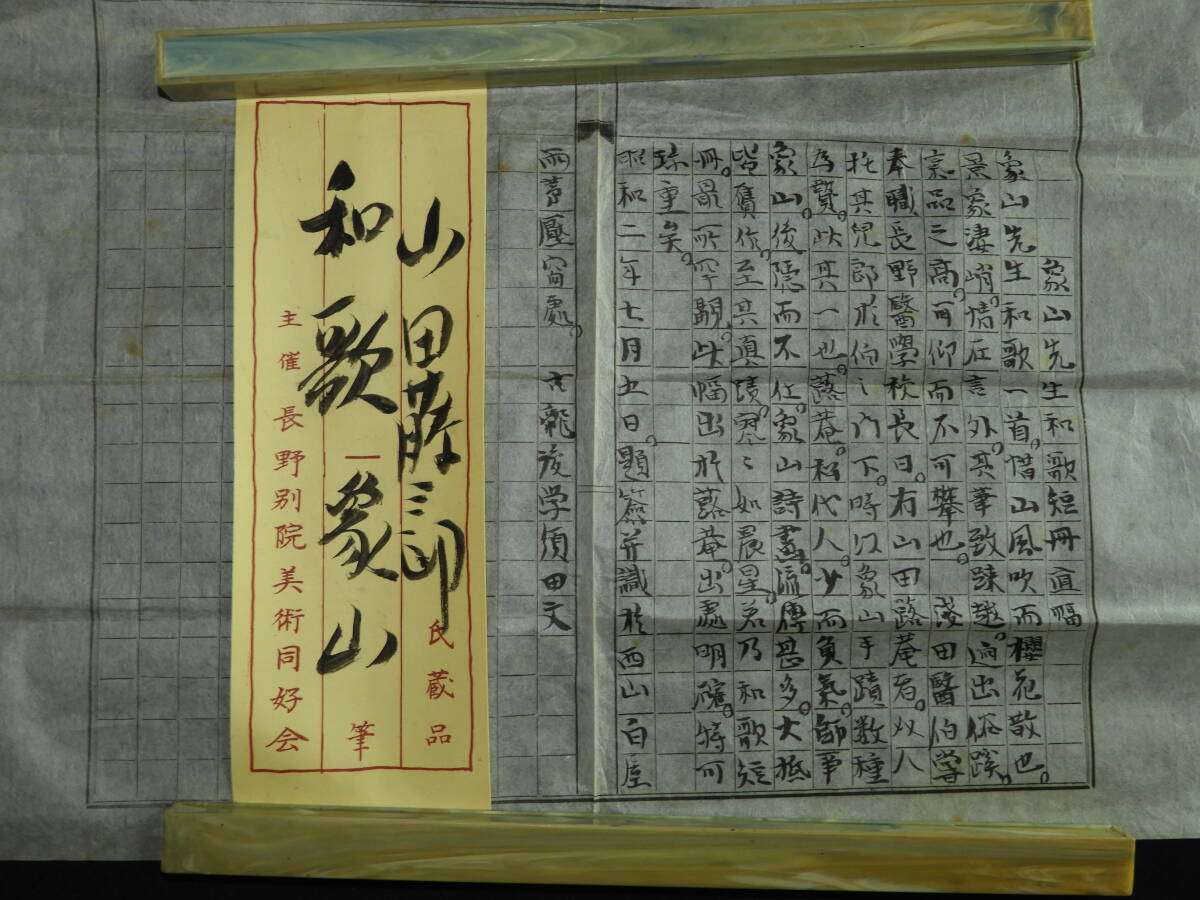 象山先生和歌短冊直幅
象山先生和歌一首。惜山風吹而櫻花散也。
景象凄峭。情在言外。其筆致疎越。逈出俗蹊。
品之高。可仰而不可攀也。淺田醫伯嘗
奉職長野醫學校長日。有山田蕗菴者。以人
托其兒郎於伯之門下。時以象山手蹟数種
為贄。此其一也。蕗菴。松代人。少而負氣節。事
象山。後隱而不仕。象山詩畫。流傳甚多。大抵
皆贋作。至其真蹟。寥々如晨星。若乃和歌短
冊。最所罕覯。此幅出於蕗菴。出處明確。特可
珍重矣。
昭和二年七月五日。題簽并識於西山白屋
雨意壓窗處。 龍後学須田文
山田三郎 氏蔵品
和歌 一 象山 筆
主催長野別院美術同好会